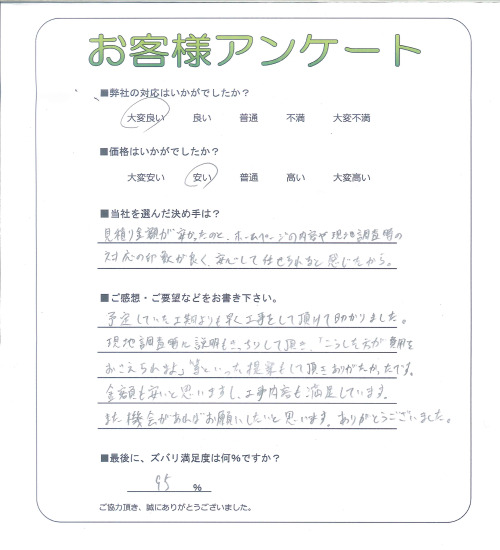 お客様アンケート
■弊社の対応はいかがでしたか？
大変良い 良い 普通 不満 大変不満
■価格はいかがでしたか？
大変安い 安い 普通 高い 大変高い
■当社を選んだ決め手は？
見積り金額が安かったのと、ホームページの内容や現地調査時の
対応の印象が良く、安心して任せられると思じたから。
■ご感想・ご要望などをお書き下さい。
予定していた工期よりも早く工事をして頂けて助かりました。
現地調査時に説明もきっちりして頂き、「こうした方が費用を
おさえられますよ」等といった提案もして頂きありがたかったです。
金額も安いと思いますし、工事内容も満足しています。
また機会があればお願いしたいと思います。ありがとうございました。
■最後に、ズバリ満足度は何％ですか？
95 ％
ご協力頂き、誠にありがとうございました。